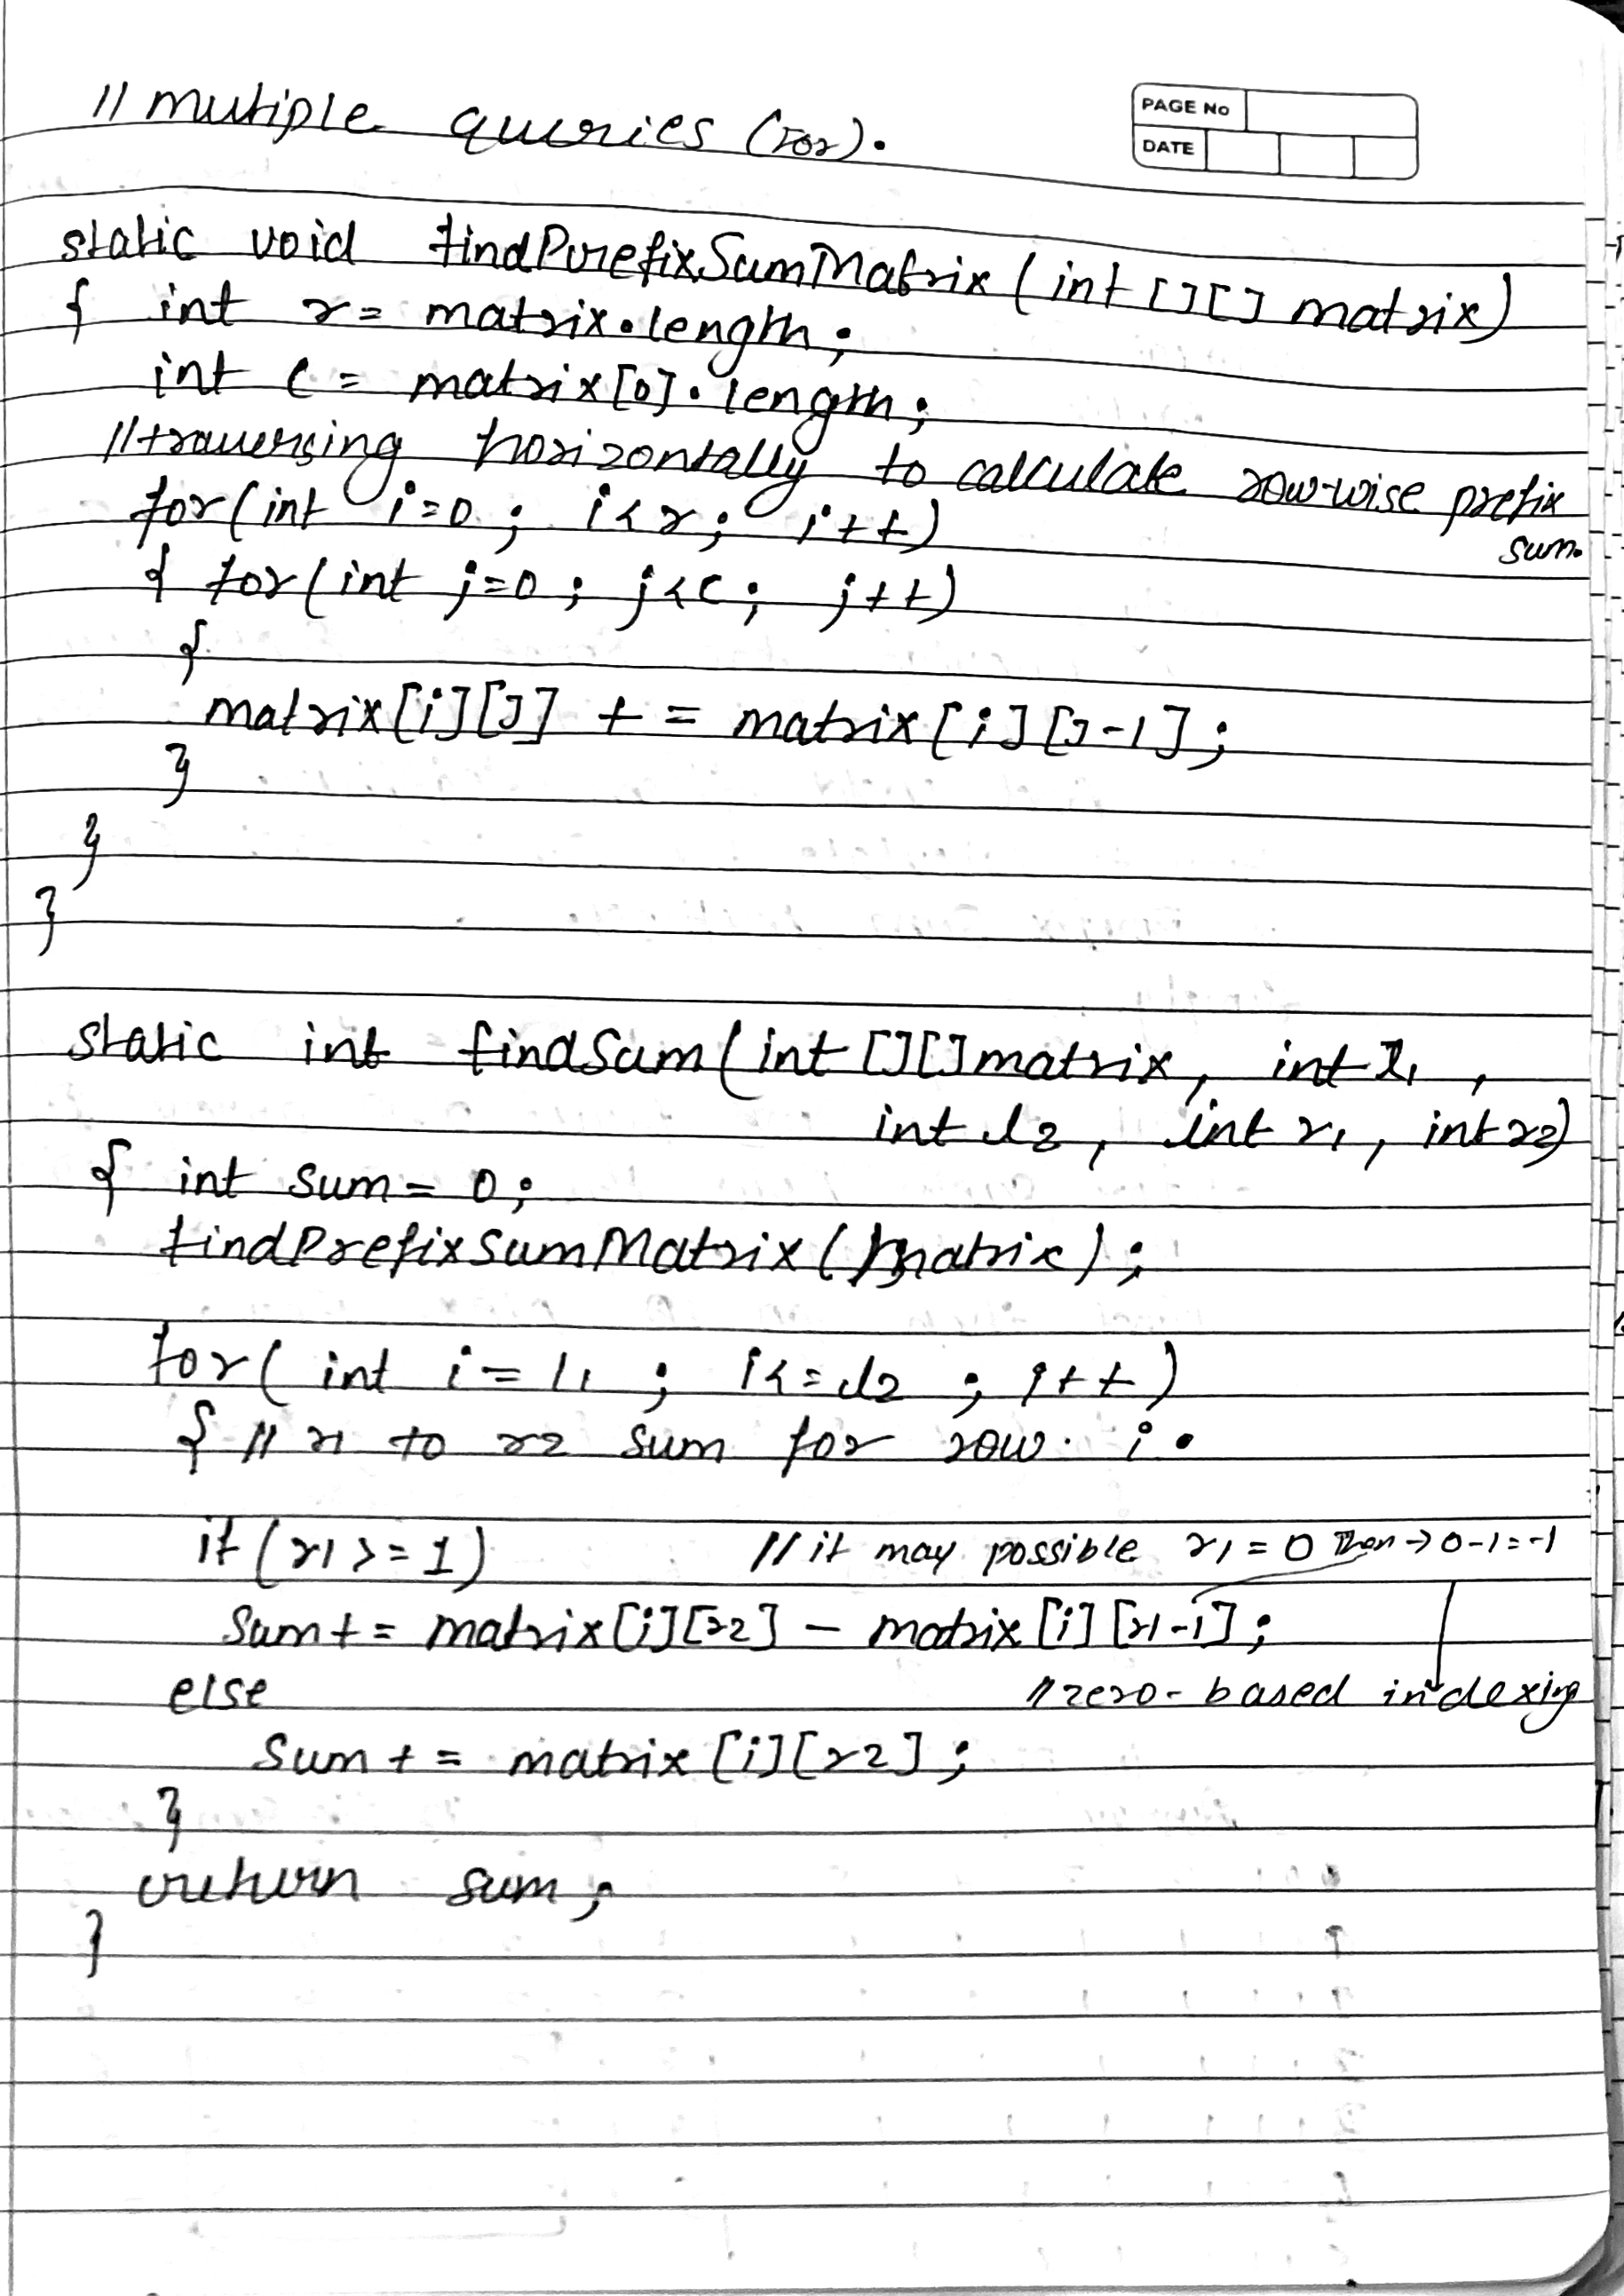 // mutiple queries (For).
PAGE No
DATE
static void findPrefixSumMatrix (int [][] matrix)
{ int r = matrix.length;
int c = matrix[0].length;
// traversing horizontally to calculate row-wise prefix
sum.
for(int i=0 ; i<r ; i++)
{ for(int j=0 ; j<c ; j++)
{
matrix[i][j] += matrix[i][j-1];
}
}
}
static int findSum(int [][]matrix, int l1 ,
int l2 , int r1 , int r2)
{ int sum = 0;
findPrefixSumMatrix (matrix) ;
for( int i = l1 ; i<=l2 ; i++)
{ // r1 to r2 sum for row. i.
if (r1 >= 1) // it may possible r1 = 0 Then → 0-1 = -1
Sum += matrix[i][r2] - matrix[i][r1-1];
else // zero-based indexing
Sum += matrix [i][r2] ;
}
return sum;
}